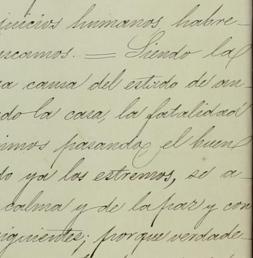 juicios humanos habre-
uscamos. = Siendo la
a causa del estado de an-
do la casa, la fatalidad
imos pasando el buen
do ya los estremos, se a
calma y de la paz y con
siguientes; porque verdade-